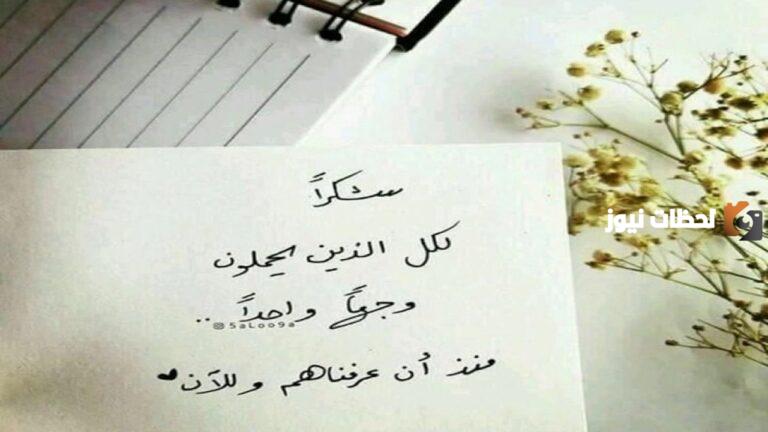 شكراً
لكل الذين يحملون
وجهاً واحداً ..
5aLoo9a
منذ أن عرفناهم وللآن
لحظات نيوز